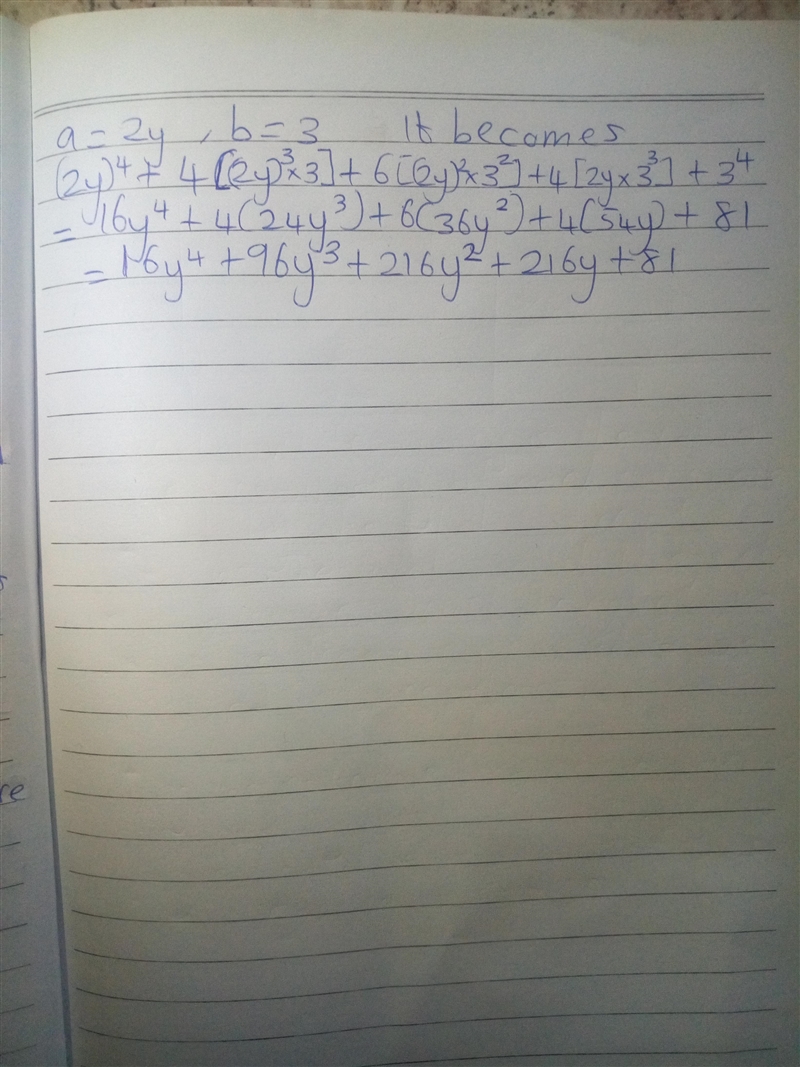 a = 2y , b = 3 It becomes
(2y)⁴ + 4[(2y)³×3] + 6[(2y)²×3²] + 4[2y×3³] + 3⁴
= 16y⁴ + 4(24y³) + 6(36y²) + 4(54y) + 81
= 16y⁴ + 96y³ + 216y² + 216y + 81
re